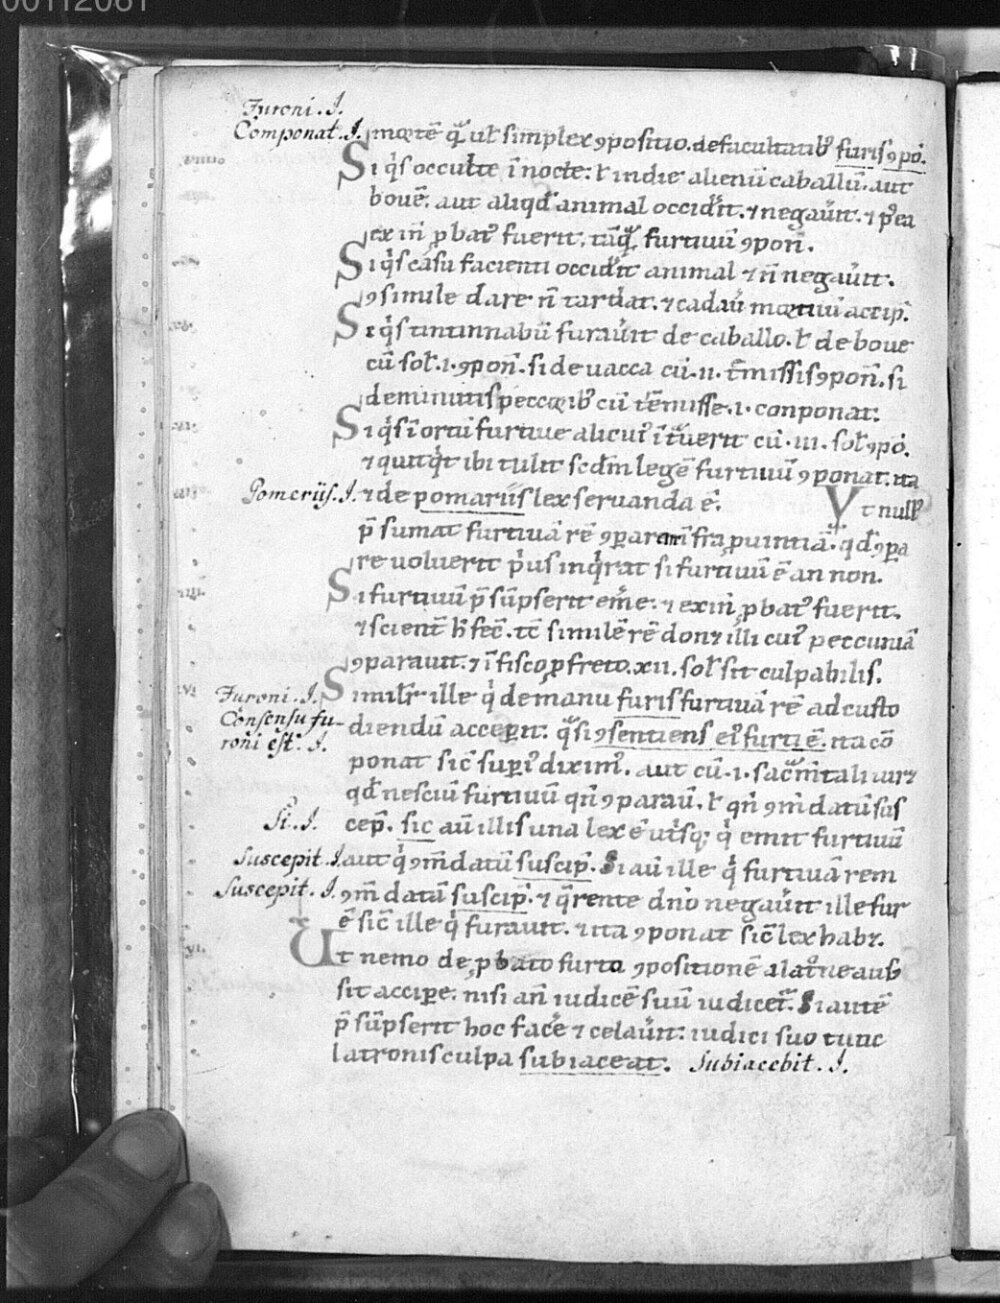 00112081
Furoni. J.
Componat. J.
morte q̄ uł simplex ꝯpositio. de facultatib; furis ꝯpo.
Si q̇s occulte ī nocte. ł in die alienū caballū. aut
bouē. aut aliqd̄ animal occiđit. ⁊ negaūit. ⁊ p̄ea
ex īn ꝓbať fuerit, tāq̄ furtiuū ꝯpon̄.
Si q̇s casu facienti occiđit animal ⁊ n̄ negaūit.
ꝯsimile dare n̄ tardat. ⁊ cadaū mortuū accip̄.
Si q̇s tintinnabū furaūit de caballo. ł de boue
cū sol. .i. ꝯpon̄. si de uacca cū .ii. t̄missis ꝯpon̄. si
de minutis peccorib; cū t̄emisse .i. conponat.
Si q̇s ī ortū furtiue alicui' īt̄uerit cū .iii. sol ꝯpo.
⁊ quicq̇t ibi tulit scđm legē furtiuū ꝯponat. ita
Pomeriis. J. ⁊ de pomariis lex seruanda ē. Vt null'
p̄sumat furtiuā rē ꝯparare īnfra ꝓuintiā. qd̄ ꝯpa
re uoluerit p̄us inq̇rat si furtiuū ē an non.
Si furtiuū p̄sūpserit em̄e. ⁊ ex īn ꝓbať fuerit,
⁊ scient̄ h̄ fec̄. tc̄ similē rē don⁊ illi cui' peccuniā
ꝯparauit. ⁊ ī fisco ꝓ freto .xii. sol sit culpabilis.
Furoni. J. Similr̄ ille q̇ de manu furis furtiuā rē ad custo
Consensu fu-
roni est. J.
diendū acceperit: q̄si ꝯsentiens ei' furti ē. ita cō
ponat sic̄ supi' dixim'. aut cū .i. sac̄m̄tali iur⁊
qd̄ nesciuī furtiuū qn̄ ꝯparaū. ł qn̄ ꝯm̄datū sus
Si. J. cep̄. sic aū illis una lex ē ut̄sq; q̇ emit furtiuū
Suscepit. J. aut q̇ ꝯm̄datū suscip̄. Si aū ille q̇ furtiuā rem
Suscepit. J. ꝯm̄datā suscip̄. ⁊ q̄rente dn̄o negaūit ille fur
ē sic̄ ille q̇ furauit. ⁊ ita ꝯponat sic̄ lex hab⁊.
Ut nemo de ꝓbato furto ꝯpositionē a latr̄ne aus'
sit accipe. nisi an̄ iudicē suū iudicet̄. Si autē
p̄sūpserit hoc face ⁊ celaūit: iudici suo tunc
latronis culpa subiaceat. Subiacebit. J.